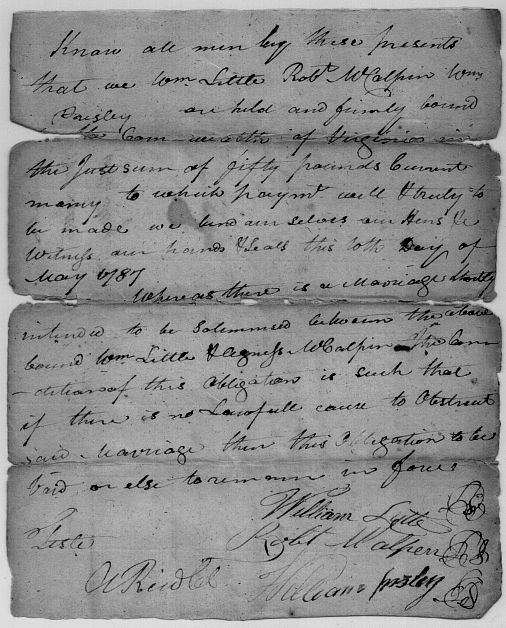 Know all men by these presents
that we Wm Little Robt McCalpin Wm
Paisley are held and firmly bound
to the Commwealth of Virginia in
the Just sum of fifty pounds Current
money to which paymt well & truly to
be made we bind ourselves our Heirs &c
Witness our hands & Seals this 10th Day of
May 1787
Whereas there is a Marriage Shortly
intended to be Solemnised between the above
bound Wm Little & Agness McCalpin The Con
-dition of this Obligation is such that
if there is no Lawfull cause to Obstruct
said Marriage then this Obligation to be
Void or else to remain in force
William Little
Teste Robt McCalpen
A Reid William